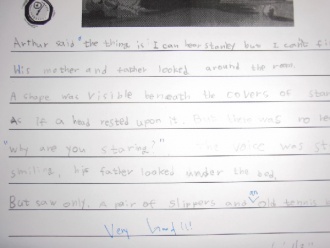 9
Arthur said "the thing is I can hear Stanley but I can't fi
His mother and father looked around the room.
A shape was visible beneath the covers of Stan
As if a head rested upon it. But there was no le
"why are you staring?" The voice was st
smiling, his father looked under the bed,
But saw only, a pair of slippers and an old tennis
Very hard!!!